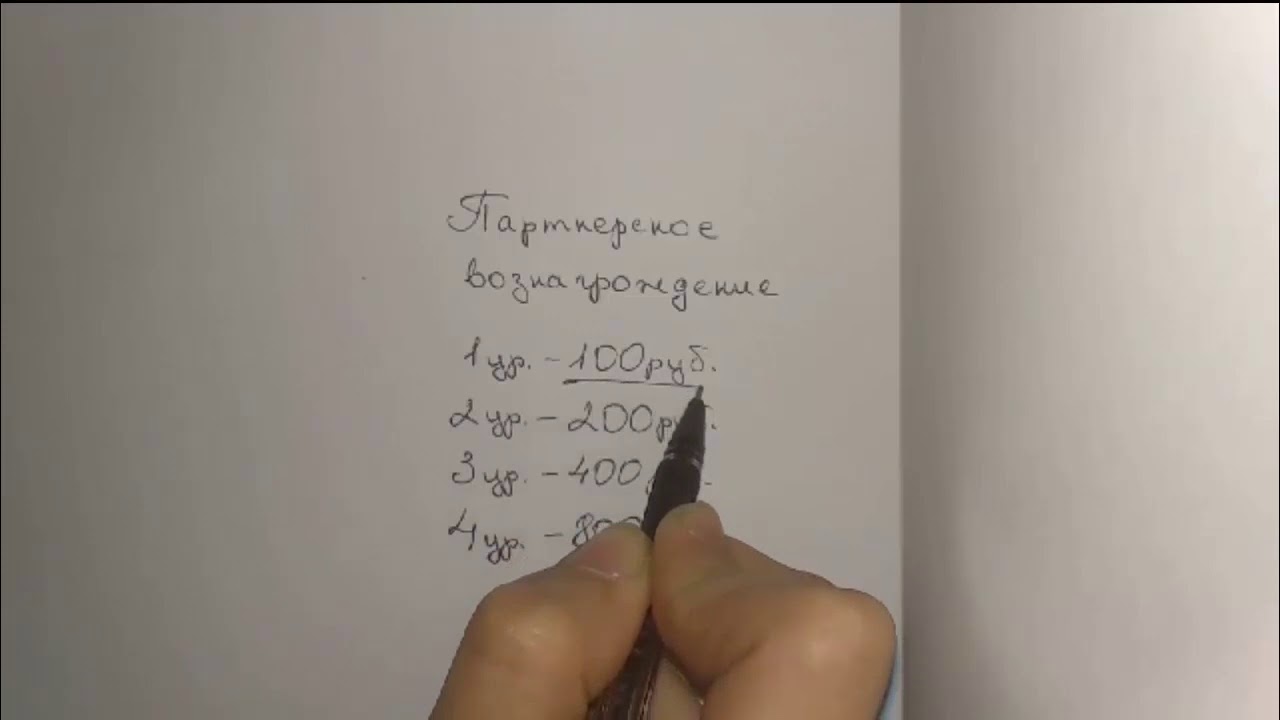 Партнерское
вознагрождение
1 ур. – 100 руб.
2 ур. – 200
3 ур. – 400
4 ур. –